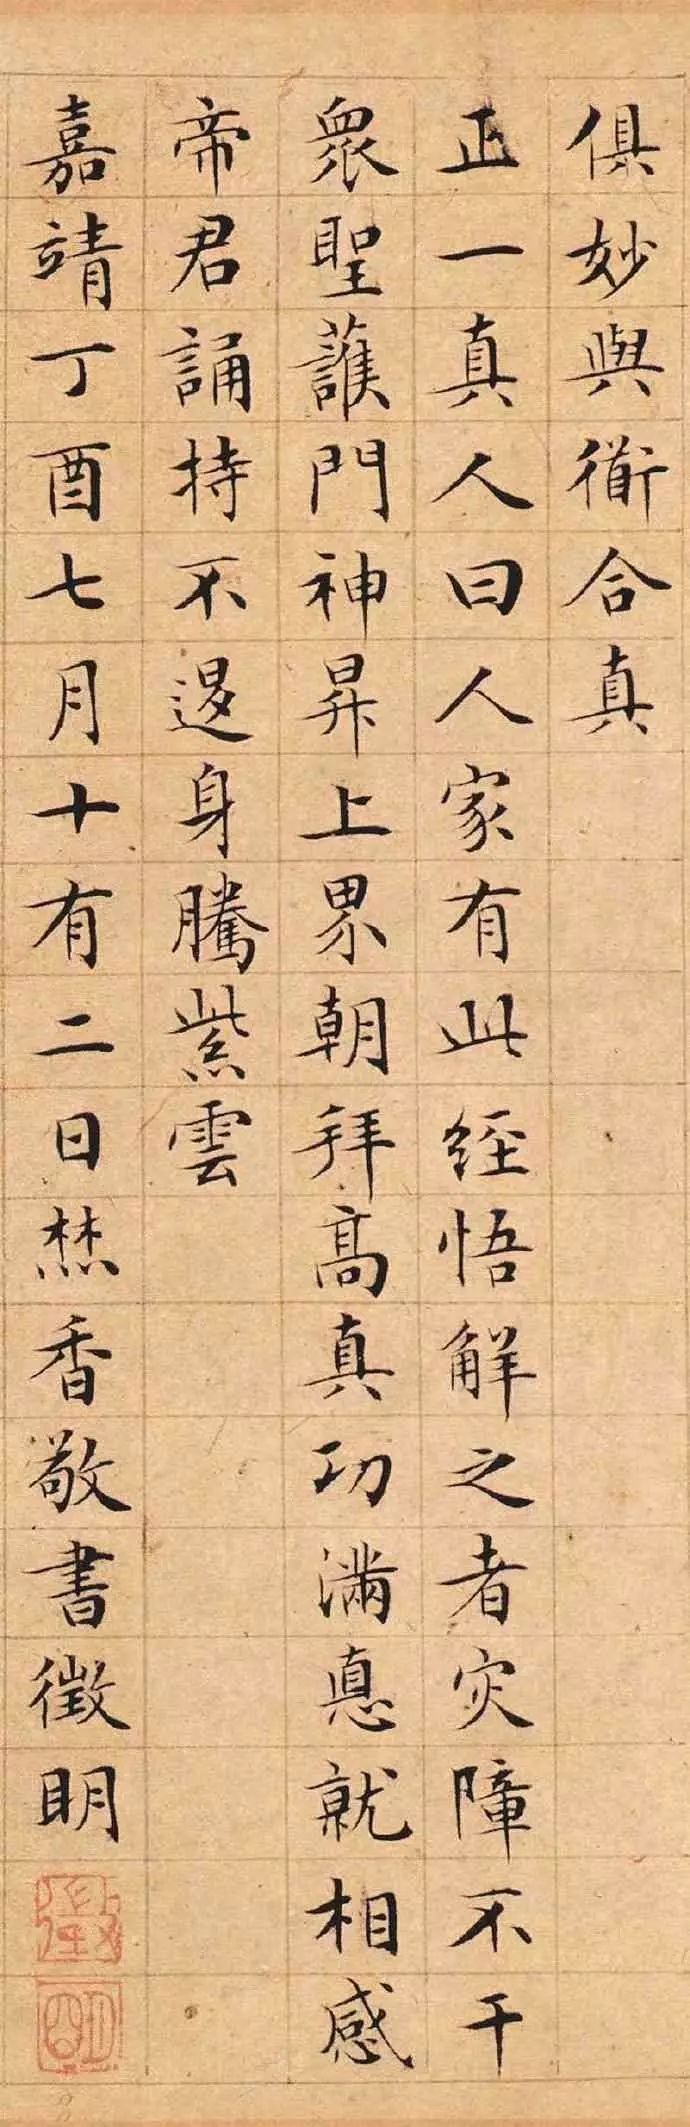 俱妙與衜合真
正一真人曰人家有此經悟解之者災障不干
眾聖護門神昇上界朝拜高真功滿悳就相感
帝君誦持不退身騰紫雲
嘉靖丁酉七月十有二日焚香敬書徵明
徵
明